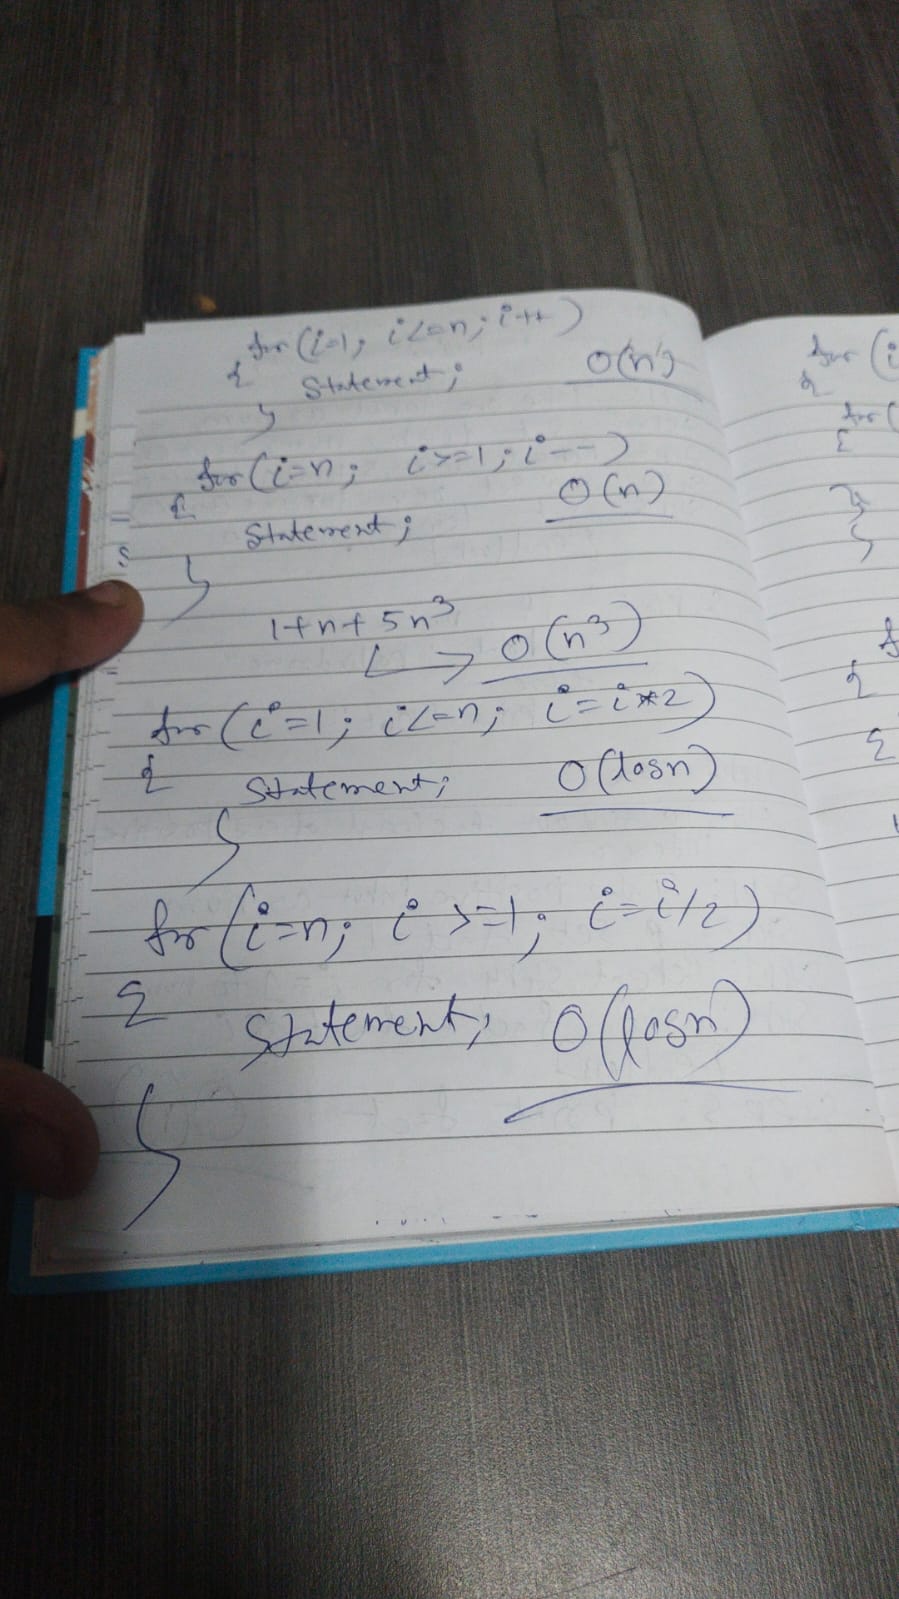 for (i=1; i<=n; i++)
{
Statement; O(n)
}
for (i=n; i>=1; i--)
{ O(n)
Statement;
}
1+n+5n³
↳ O(n³)
for (i=1; i<=n; i=i*2)
{
Statement; O(logn)
}
for (i=n; i>=1; i=i/2)
{
Statement; O(logn)
}
for (i
{
for (
{
}
}
{
{